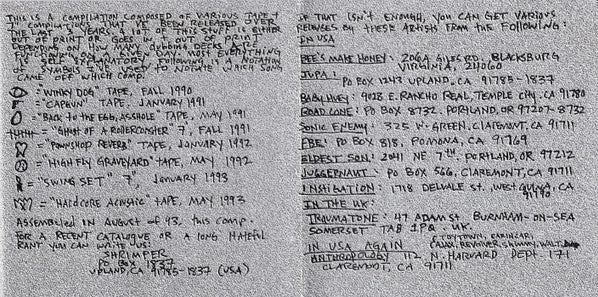 THIS IS A COMPILATION COMPOSED OF VARIOUS TAPE &
COMPILATIONS THAT'VE BEEN RELEASED OVER
THE LAST YEARS. A LOT OF THIS STUFF IS EITHER
OUT OF PRINT OR GOES IN & OUT OF PRINT
DEPENDING ON HOW MANY DUBBING DECKS ARE
FUNCTIONING ON A GIVEN DAY. MOST EVERYTHING
IS SELF EXPLANATORY. FOLLOWING IS A NOTATION
OF SYMBOLS USED TO NOTATE WHICH SONG
CAME OFF WHICH COMP.
= "WINKY DOG" TAPE, FALL 1990
= "CAPGUN" TAPE, JANUARY 1991
= "BACK TO THE EGG, ASSHOLE" TAPE, MAY 1991
= "GHOST OF A ROLLERCOASTER" 7, FALL 1991
= "PAWNSHOP REVERB" TAPE, JANUARY 1992
= "HIGH FLY GRAVEYARD" TAPE, MAY 1992
= "SWING SET" 7", JANUARY 1993
= "HARDCORE ACOUSTIC" TAPE, MAY 1993
ASSEMBLED IN AUGUST OF 93, THIS COMP.
FOR A RECENT CATALOGUE OR A LONG HATEFUL
RANT YOU CAN WRITE US:
SHRIMPER
PO BOX 1837
UPLAND, CA 91785-1837 (USA)
IF THAT ISN'T ENOUGH, YOU CAN GET VARIOUS
RELEASES BY THESE ARTISTS FROM THE FOLLOWING:
IN USA
BEE'S MAKE HONEY: 206A GILES RD, BLACKSBURG
VIRGINIA, 24060
JUPA:
PO BOX 1243 UPLAND, CA. 91785-1837
BABY HUEY: 9028 E. RANCHO REAL, TEMPLE CITY, CA 91780
ROAD CONE: PO BOX 8732. PORTLAND, OR 97207-8732
SONIC ENEMY: 325 W. GREEN. CLAREMONT, CA 91711
PBE: PO BOX 818, POMONA, CA 91769
ELDEST SON: 2041 NE 7th. PORTLAND, OR 97212
JUGGERNAUT: PO BOX 566, CLAREMONT, CA 91711
INSTIGATION: 1718 DELVALE ST. WEST COVINA, CA
IN THE UK:
TRAUMATONE: 47 ADAM ST BURNHAM-ON-SEA
SOMERSET TA8 1PQ UK.
IN USA AGAIN
ANTHROPOLOGY 112 N. HARVARD DEPT 171
CLAREMONT, CA 91711